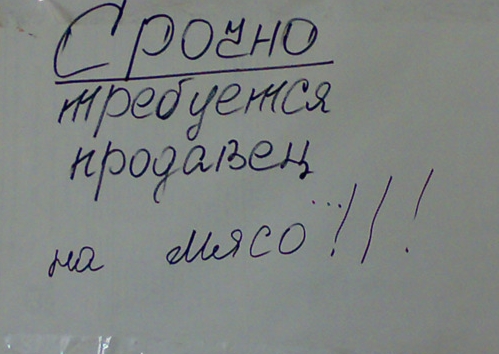 Срочно
требуется
продавец
на мясо...!!!